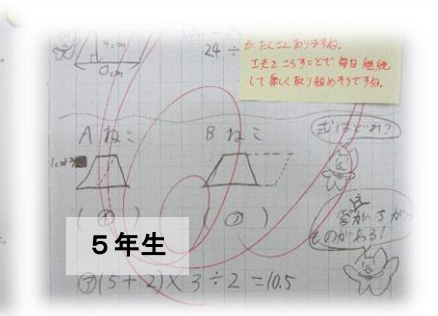 24÷
がたくさんありますね。
工夫をこらすことで毎日継続
して楽しく取り組めそうですね。
Aねこ Bねこ
式はどれ?
5年生
ものがある!
㋐(5+2)×3÷2=10.5